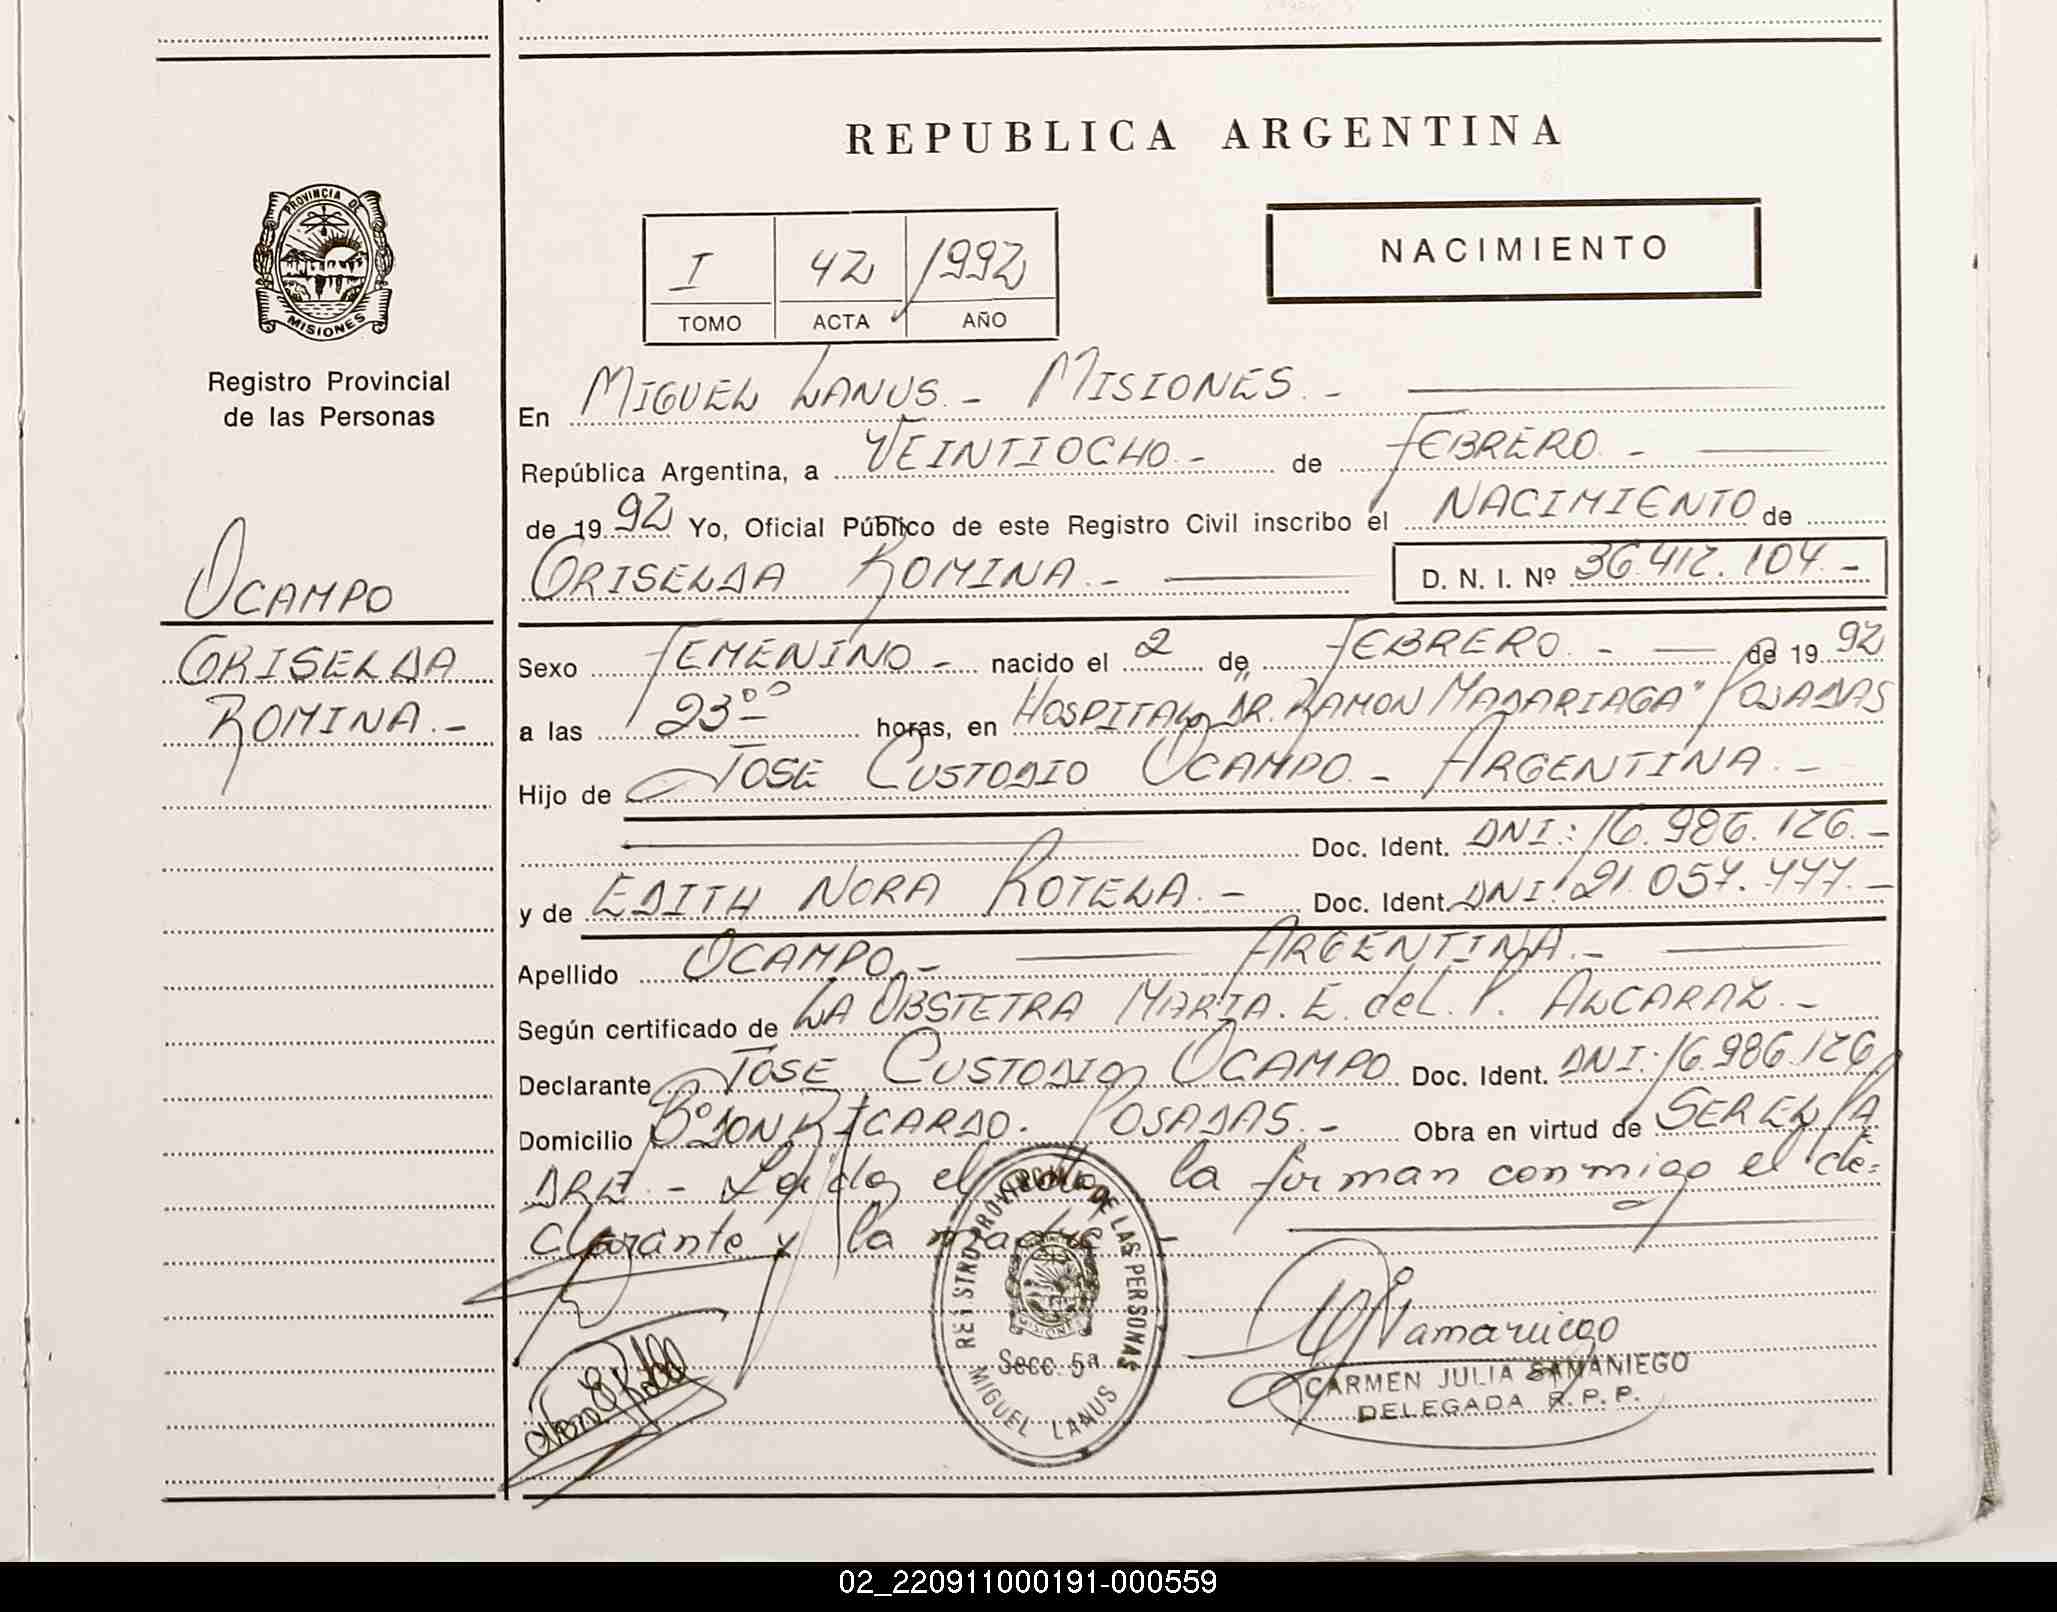 REPUBLICA ARGENTINA
PROVINCIA DE
MISIONES
Registro Provincial
de las Personas
I 42 1992
TOMO ACTA AÑO
NACIMIENTO
En MIGUEL LANUS.- MISIONES.-
República Argentina, a VEINTIOCHO.- de FEBRERO.-
de 1992 Yo, Oficial Público de este Registro Civil inscribo el NACIMIENTO de
GRISELDA ROMINA.- D. N. I. Nº 36.412.104.-
OCAMPO
GRISELDA
ROMINA.-
Sexo FEMENINO- nacido el 2 de FEBRERO.- de 1992
a las 23ºº horas, en HOSPITAL "DR. RAMON MADARIAGA" POSADAS
Hijo de JOSE CUSTODIO OCAMPO.- ARGENTINA.-
Doc. Ident. DNI: 16.986.126.-
y de EDITH NORA ROTELA.- Doc. Ident. DNI: 21.057.477.-
Apellido OCAMPO.- ARGENTINA.-
Según certificado de LA OBSTETRA MARIA. E. del. P. ALCARAZ.-
Declarante JOSE CUSTODIO OCAMPO Doc. Ident. DNI: 16.986.126
Domicilio Bº DON RICARDO. POSADAS.- Obra en virtud de SER EL PA
DRE.- Leida el acta, la firman conmigo el de=
clarante y la madre.-
REGISTRO PROVINCIAL DE LAS PERSONAS
MISIONES
Secc. 5ª
MIGUEL LANUS
CARMEN JULIA SAMANIEGO
DELEGADA R.P.P.
02_220911000191-000559